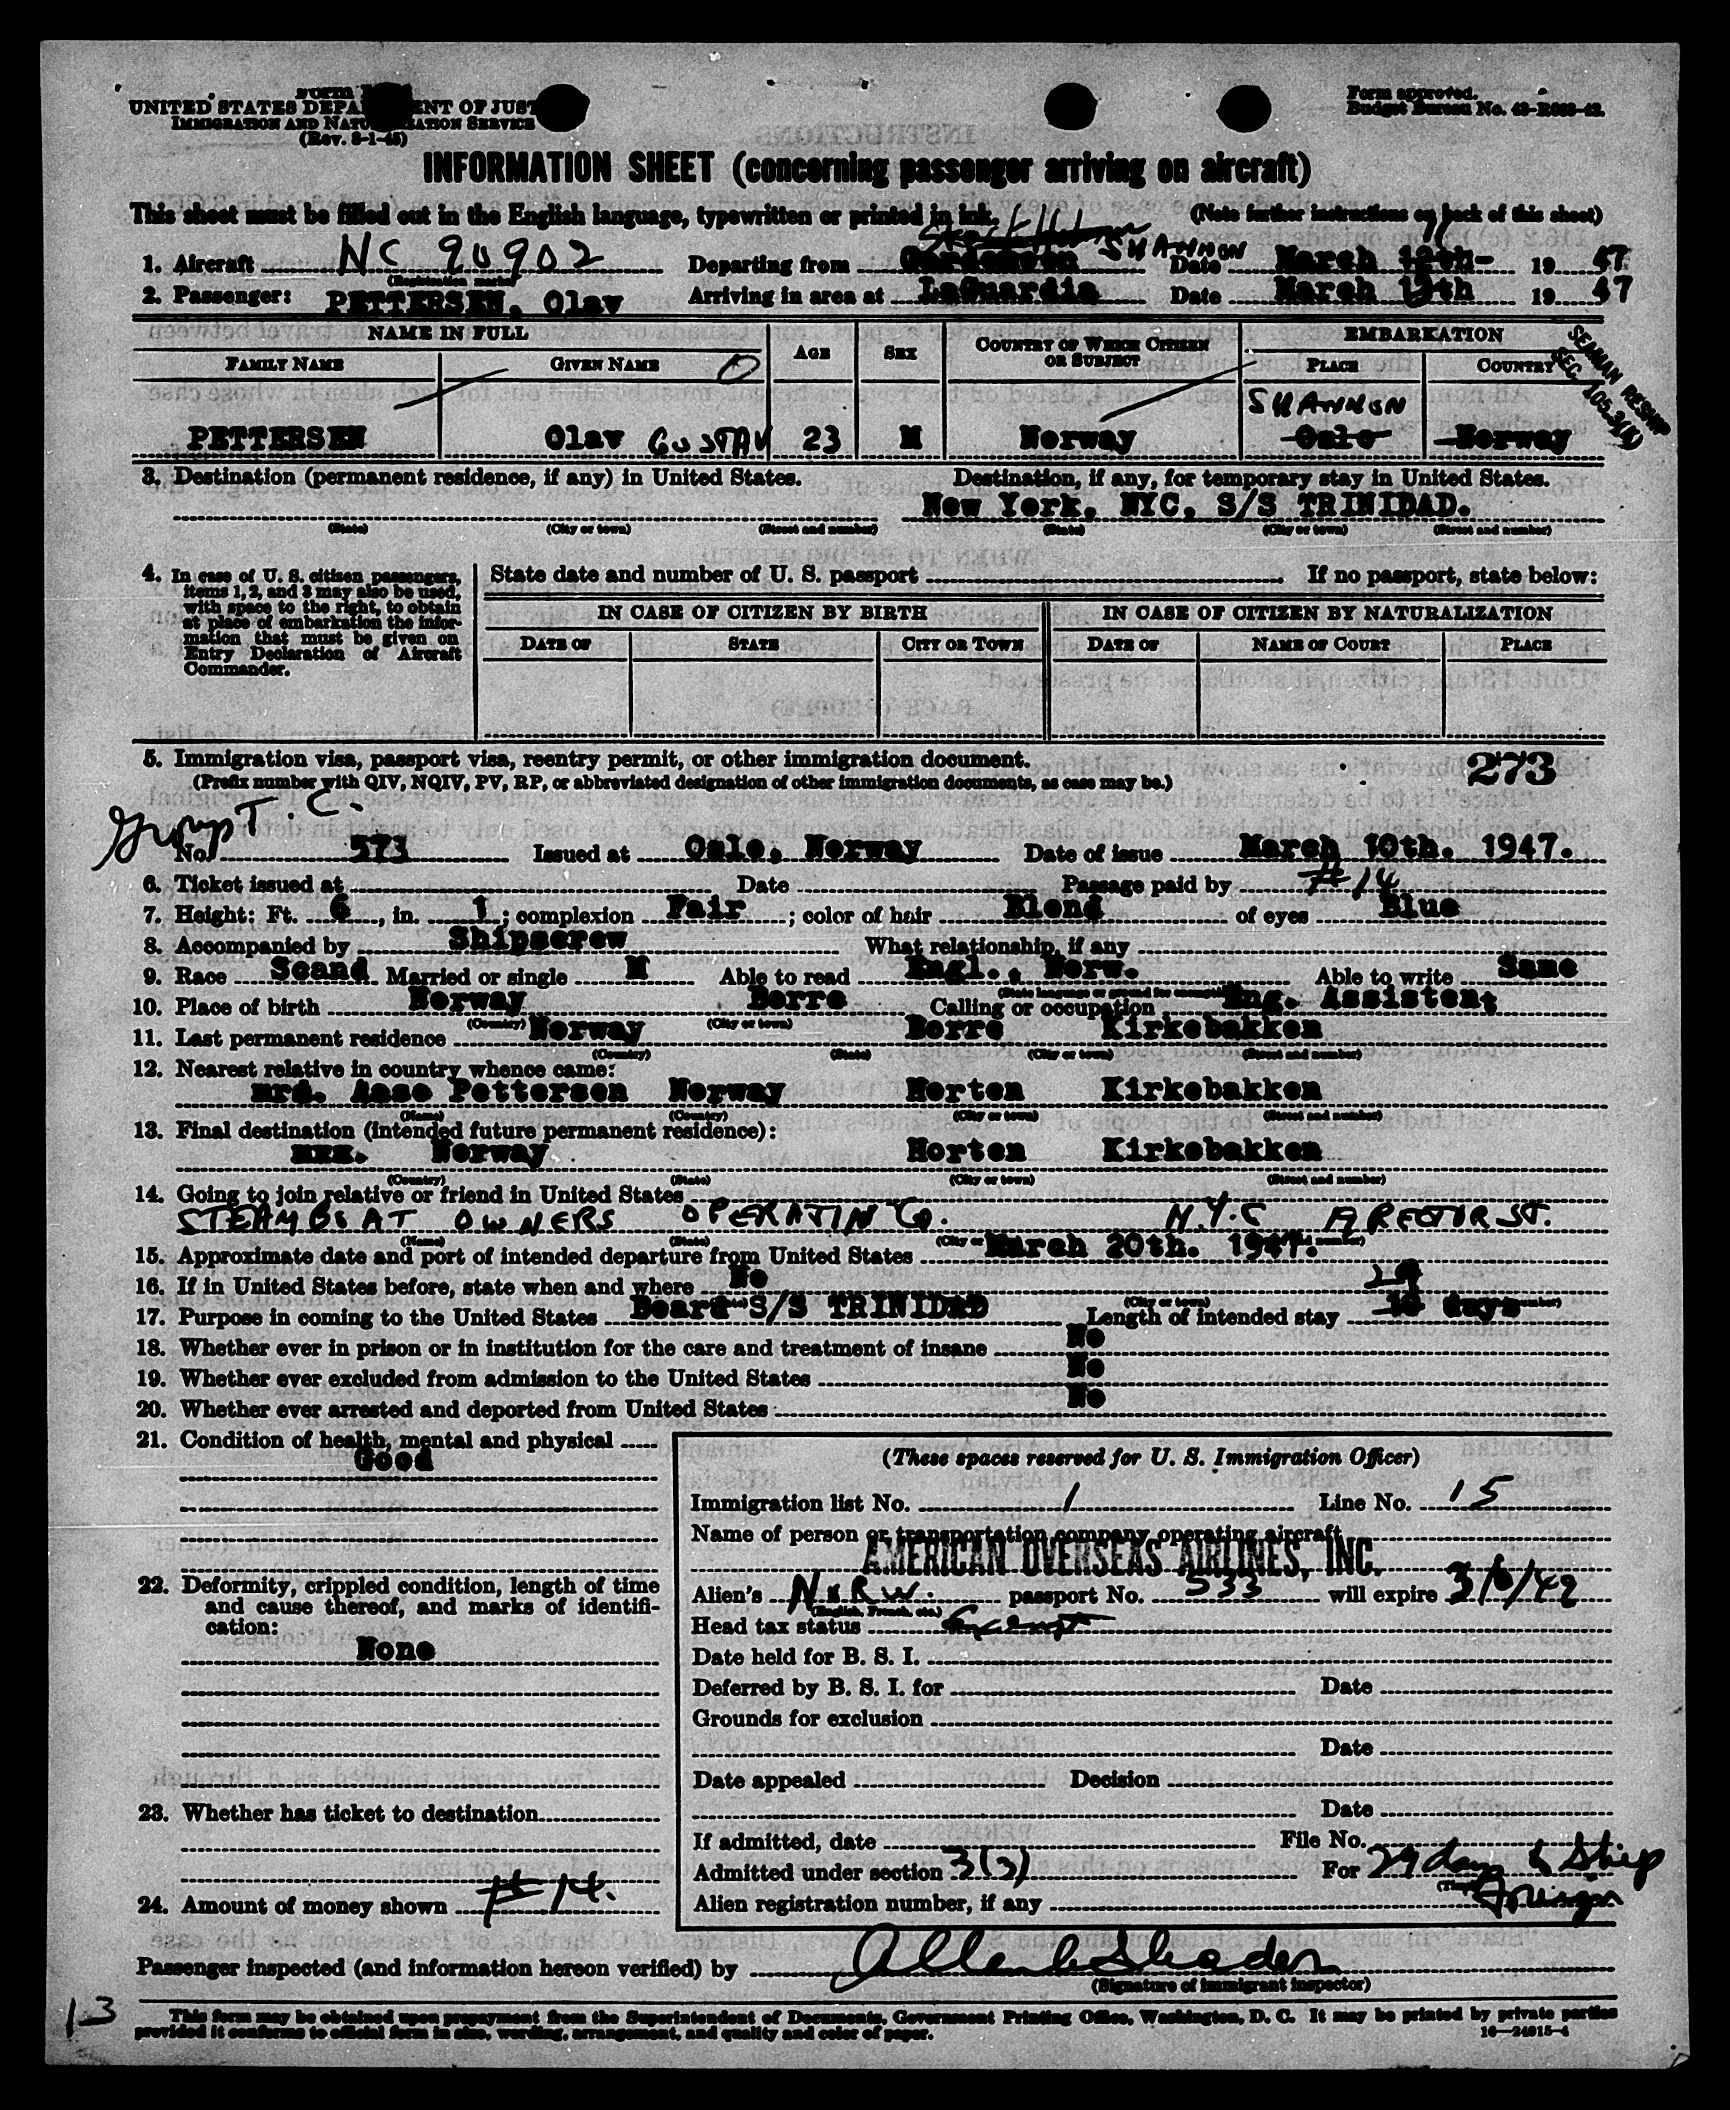 UNITED STATES DEPA ENT OF JUST
IMMIGRATION AND NATU IZATION SERVICE
(Rev. 8-1-45)
Form approved.
Budget Bureau No.
INFORMATION SHEET (concerning passenger arriving on aircraft)
This sheet must be filled out in the English language, typewritten or printed in ink.
(Note further instructions on back of this sheet)
1. Aircraft NC 90902 Departing from SHANNON Date March 12th 11 1947
(Registration marks)
2. Passenger: PETTERSEN, Olav Arriving in area at LaGuardia Date March 1 th 1947
NAME IN FULL AGE SEX COUNTRY OF WHICH CITIZEN OR SUBJECT EMBARKATION
FAMILY NAME GIVEN NAME PLACE COUNTRY
SEAMAN RESHIP
SEC. 105.3(K)
SHANNON
PETTERSEN Olav GUSTAV 23 M Norway Oslo Norway
3. Destination (permanent residence, if any) in United States. Destination, if any, for temporary stay in United States.
New York, NYC, S/S TRINIDAD.
(State) (City or town) (Street and number) (State) (City or town) (Street and number)
4. In case of U. S. citizen passengers, items 1, 2, and 3 may also be used, with space to the right, to obtain at place of embarkation the information that must be given on Entry Declaration of Aircraft Commander.
State date and number of U. S. passport If no passport, state below:
IN CASE OF CITIZEN BY BIRTH IN CASE OF CITIZEN BY NATURALIZATION
DATE OF STATE CITY OR TOWN DATE OF NAME OF COURT PLACE
5. Immigration visa, passport visa, reentry permit, or other immigration document. 273
(Prefix number with QIV, NQIV, PV, RP, or abbreviated designation of other immigration documents, as case may be.)
T. C.
No. 573 Issued at Oslo, Norway Date of issue March 10th. 1947.
6. Ticket issued at Date Passage paid by #14
7. Height: Ft. 6, in. 1; complexion Fair; color of hair Blond of eyes Blue
8. Accompanied by Shipscrew What relationship, if any
9. Race Scand Married or single M Able to read Engl., Norw. Able to write Same
(State language or ground for exemption)
10. Place of birth Norway Borre Calling or occupation Eng. Assistent
(Country) (City or town)
11. Last permanent residence Norway Borre Kirkebakken
(Country) (State) (City or town) (Street and number)
12. Nearest relative in country whence came:
mrd. Aase Pettersen Norway Horten Kirkebakken
(Name) (Country) (City or town) (Street and number)
13. Final destination (intended future permanent residence):
Norway Horten Kirkebakken
(Country) (State) (City or town) (Street and number)
14. Going to join relative or friend in United States
STEAMBOAT OWNERS OPERATIN Co. N.Y.C RECTOR ST.
(Name) (State) (City or
15. Approximate date and port of intended departure from United States March 20th. 1947.
16. If in United States before, state when and where No
(City or town)
29
17. Purpose in coming to the United States Board S/S TRINIDAD Length of intended stay 10 days
18. Whether ever in prison or in institution for the care and treatment of insane No
19. Whether ever excluded from admission to the United States No
20. Whether ever arrested and deported from United States No
21. Condition of health, mental and physical
Good
22. Deformity, crippled condition, length of time
and cause thereof, and marks of identifi-
cation:
None
23. Whether has ticket to destination
24. Amount of money shown #14.
(These spaces reserved for U. S. Immigration Officer)
Immigration list No. 1 Line No. 15
Name of person or transportation company operating aircraft
AMERICAN OVERSEAS AIRLINES, INC.
Alien's NORW. passport No. 533 will expire 3/6/49
(English, French, etc.)
Head tax status Exempt
Date held for B. S. I.
Deferred by B. S. I. for Date
Grounds for exclusion
Date
Date appealed Decision
Date
If admitted, date File No.
Admitted under section 3(3) For 29 days & Ship
Foreign
Alien registration number, if any
Passenger inspected (and information hereon verified) by
(Signature of immigrant inspector)
13
This form may be obtained upon prepayment from the Superintendent of Documents, Government Printing Office, Washington, D. C. It may be printed by private parties
provided it conforms to official form in size, wording, arrangement, and quality and color of paper.
16—24915-4